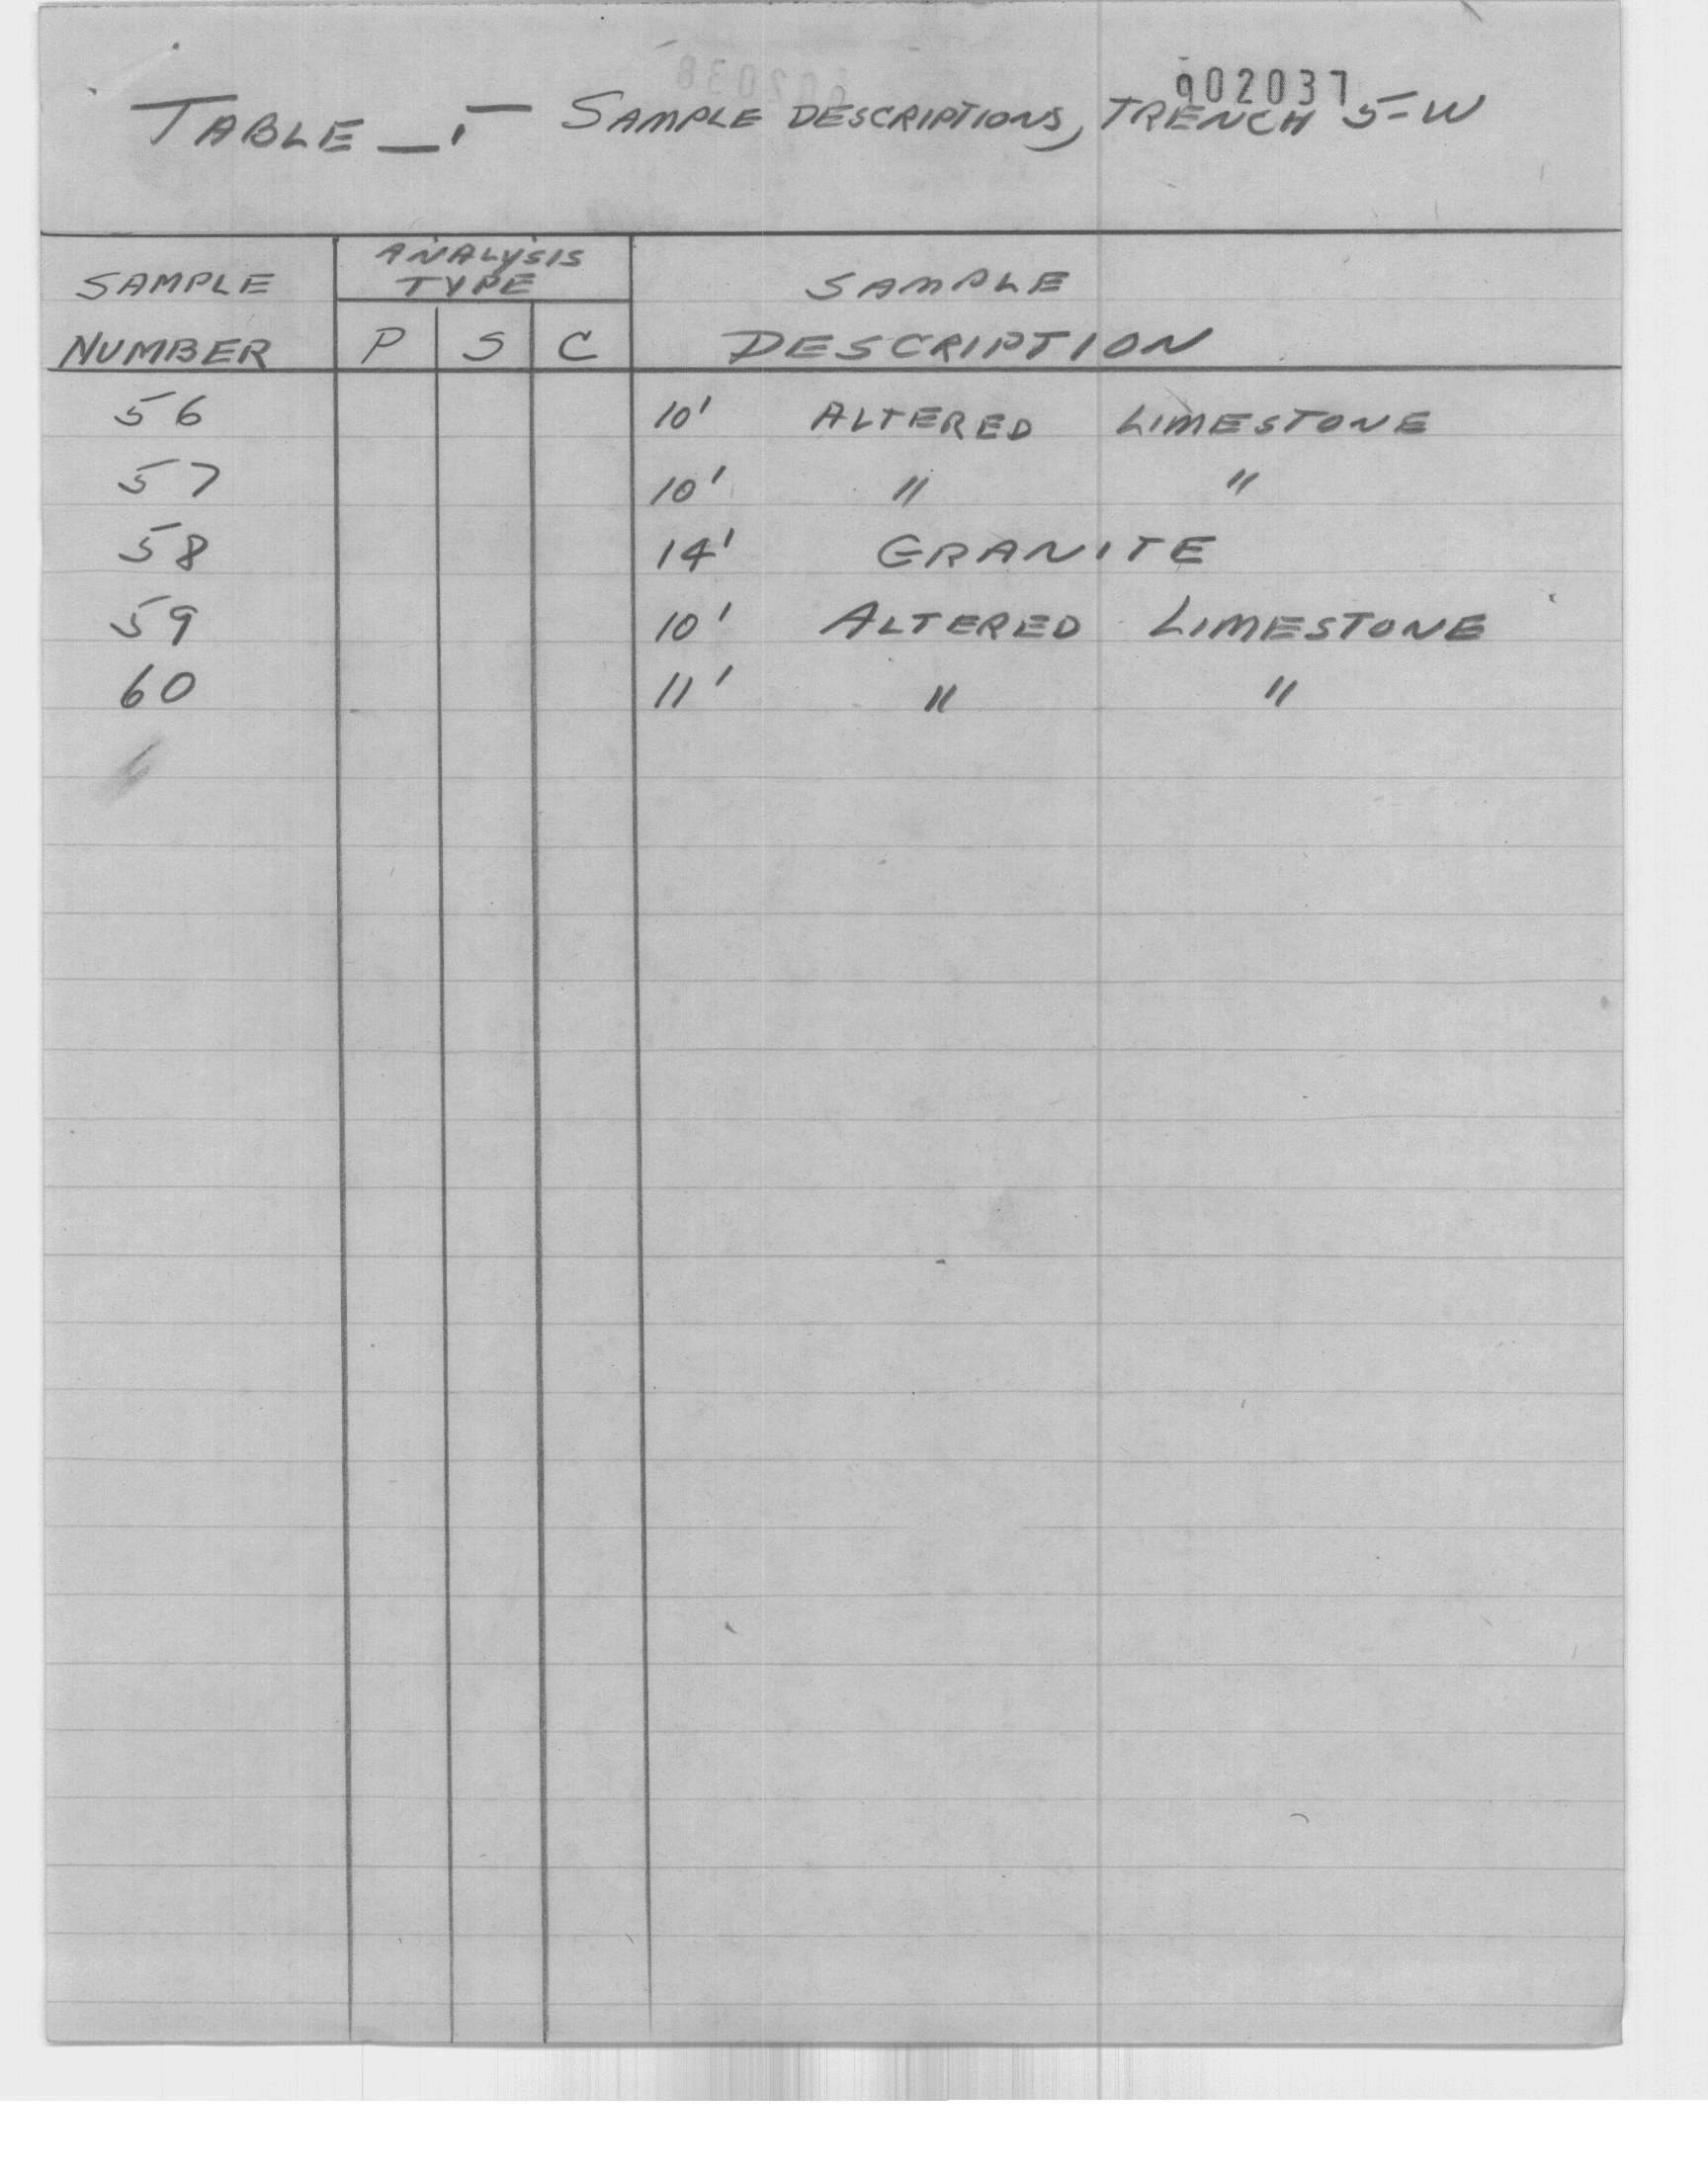 002037
TABLE _. — SAMPLE DESCRIPTIONS, TRENCH 5-W
SAMPLE NUMBER ANALYSIS TYPE SAMPLE DESCRIPTION
P S C
56 10' ALTERED LIMESTONE
57 10' " "
58 14' GRANITE
59 10' ALTERED LIMESTONE
60 11' " "